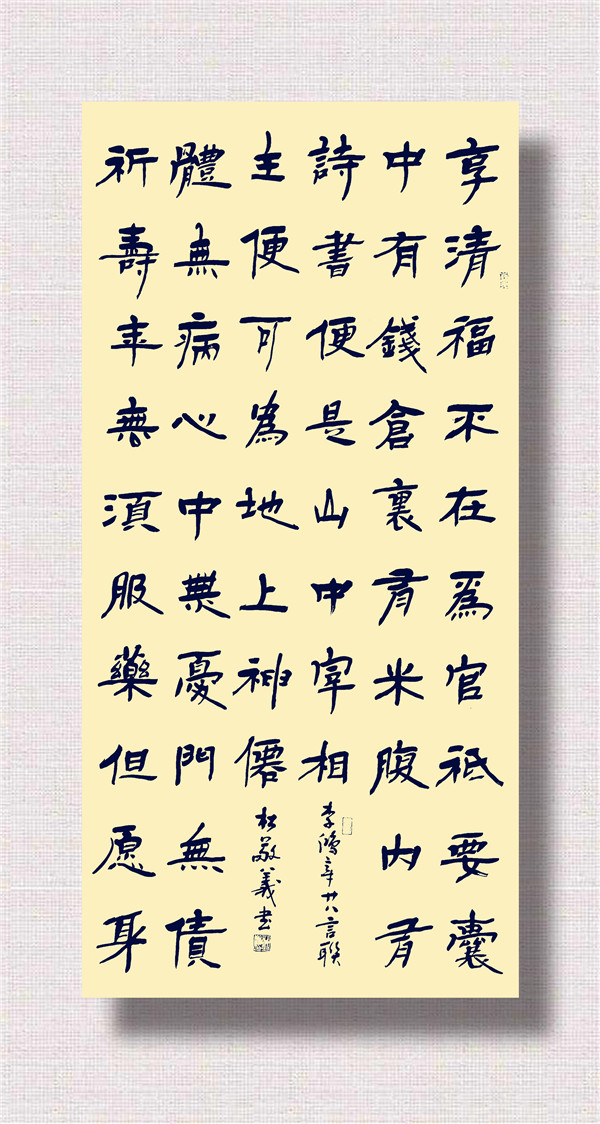 享清福不在爲官祇要囊
中有錢倉裏有米腹内有
詩書便是山中宰相
李鴻章廿八言聯
祈壽年無須服藥但愿身
體無病心中無憂門無債
主便可為地上神僊
敬義書